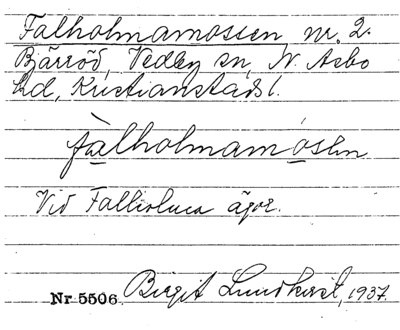 Falholmamossen nr. 2.
Bjärröd, Vedby sn, N. Asbo
hd, Kristianstads l.
fàlholmamosen
Vid Fallholma ägor.
Nr 5506. Birgit Lundkvist, 1937.